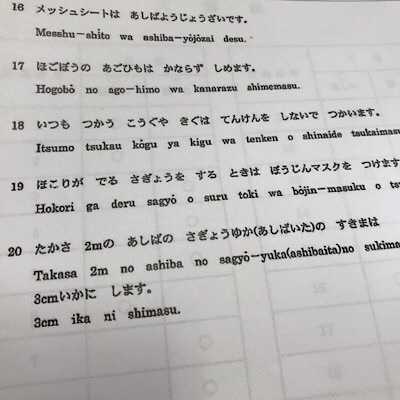 16 メッシュシートは あしばようじょうざいです。
Messhu－shito wa ashiba－yōjōzai desu.
17 ほごぼうの あごひもは かならず しめます。
Hogobō no ago－himo wa kanarazu shimemasu.
18 いつも つかう こうぐや きぐは てんけんを しないで つかいます。
Itsumo tsukau kōgu ya kigu wa tenken o shinaide tsukaimasu
19 ほこりが でる さぎょうを する ときは ぼうじんマスクを つけます
Hokori ga deru sagyō o suru toki wa bōjin－masuku o
20 たかさ 2mの あしばの さぎょうゆか(あしばいた)の すきまは
Takasa 2m no ashiba no sagyō－yuka(ashibaita)no sukima
3cmいかに します。
3cm ika ni shimasu.